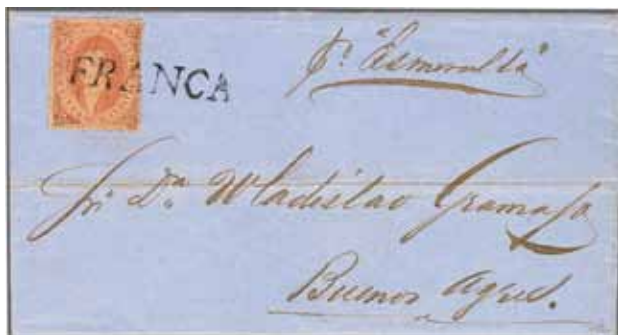 FRANCA
pr "Esmeralda"
Sr. Dn. Wladislao Gramajo
Buenos Ayres.